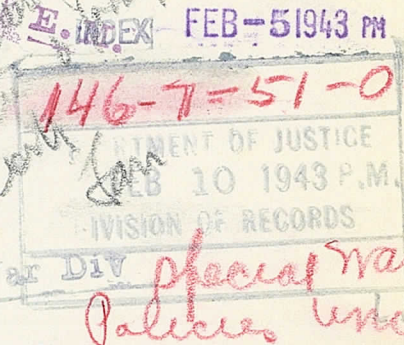 E. INDEX FEB-51943 PM
146-7-51-0
RTMENT OF JUSTICE
EB 10 1943 P.M.
IVISION OF RECORDS
ar Div Special Wa
Policies Und